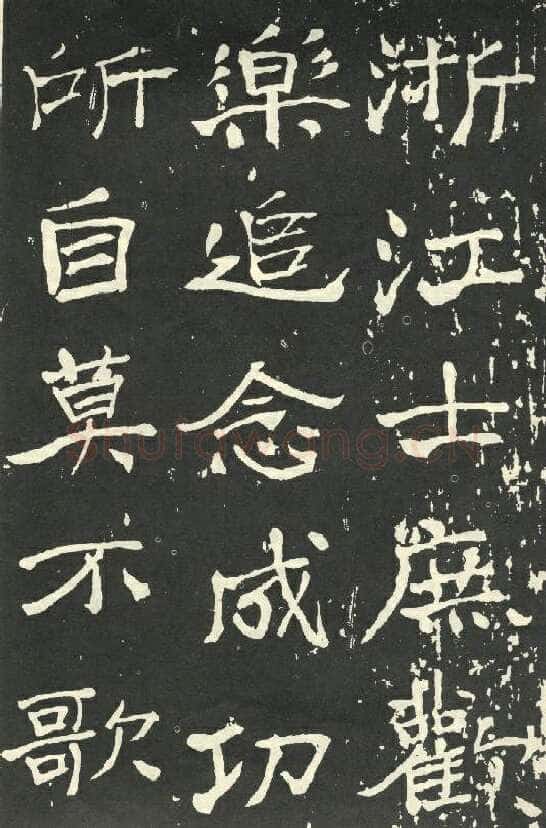 浙江士庶歡
樂追念成功
所自莫不歌
shufawang.CN